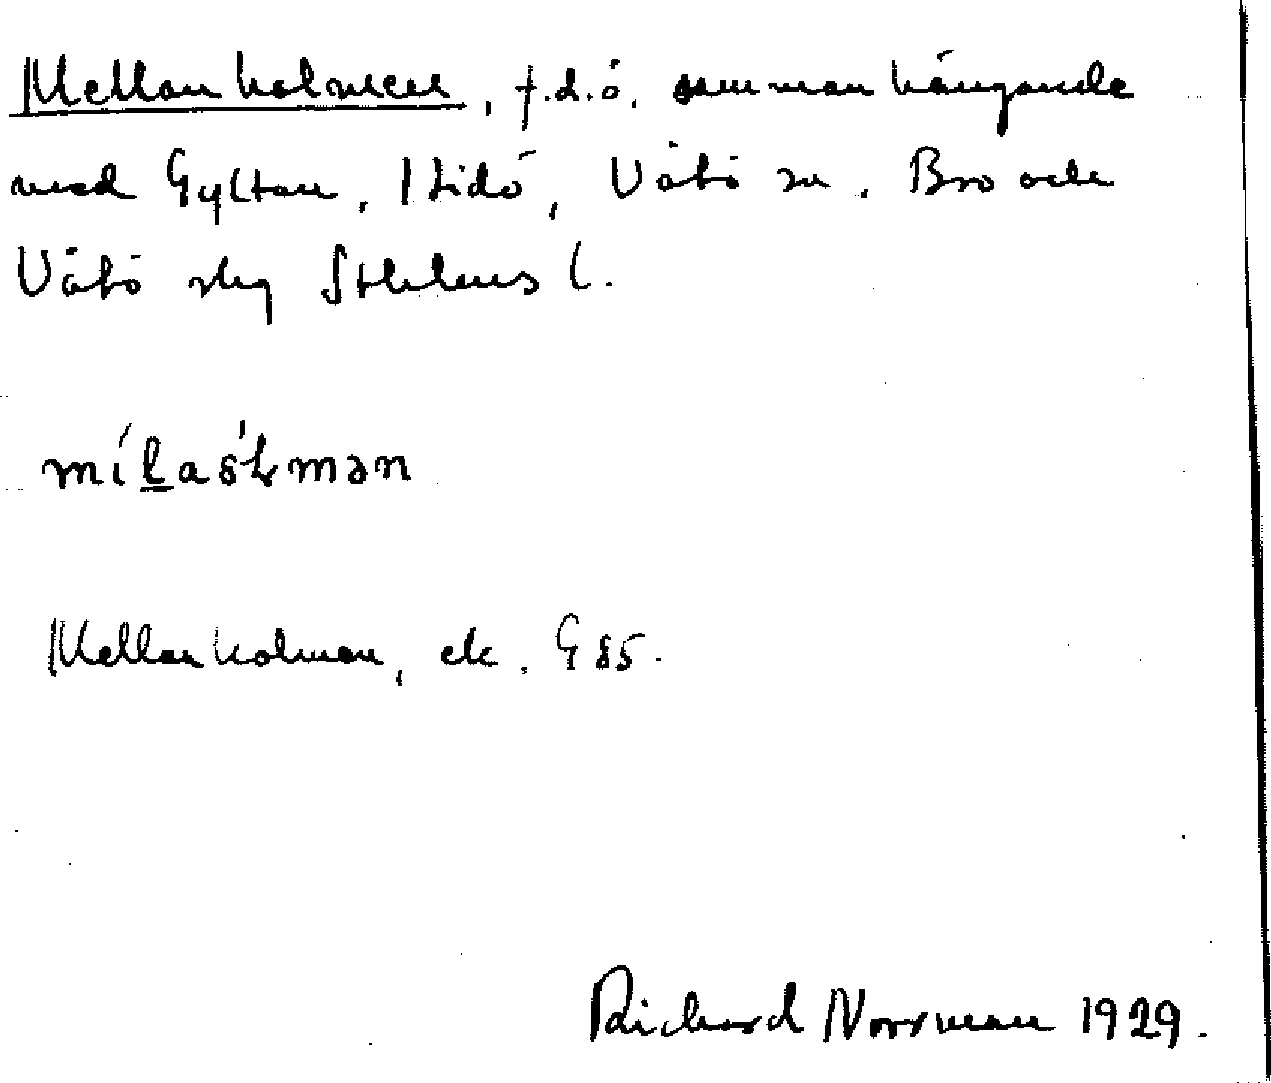 Mellanholmen, f.d.ö, sammanhängande
med Gyltan, Itidö, Vätö sn. Bro och
Vätö slg Sthlms l.
Mellanholmen, ek. G 85.
Richard Norrman 1929.